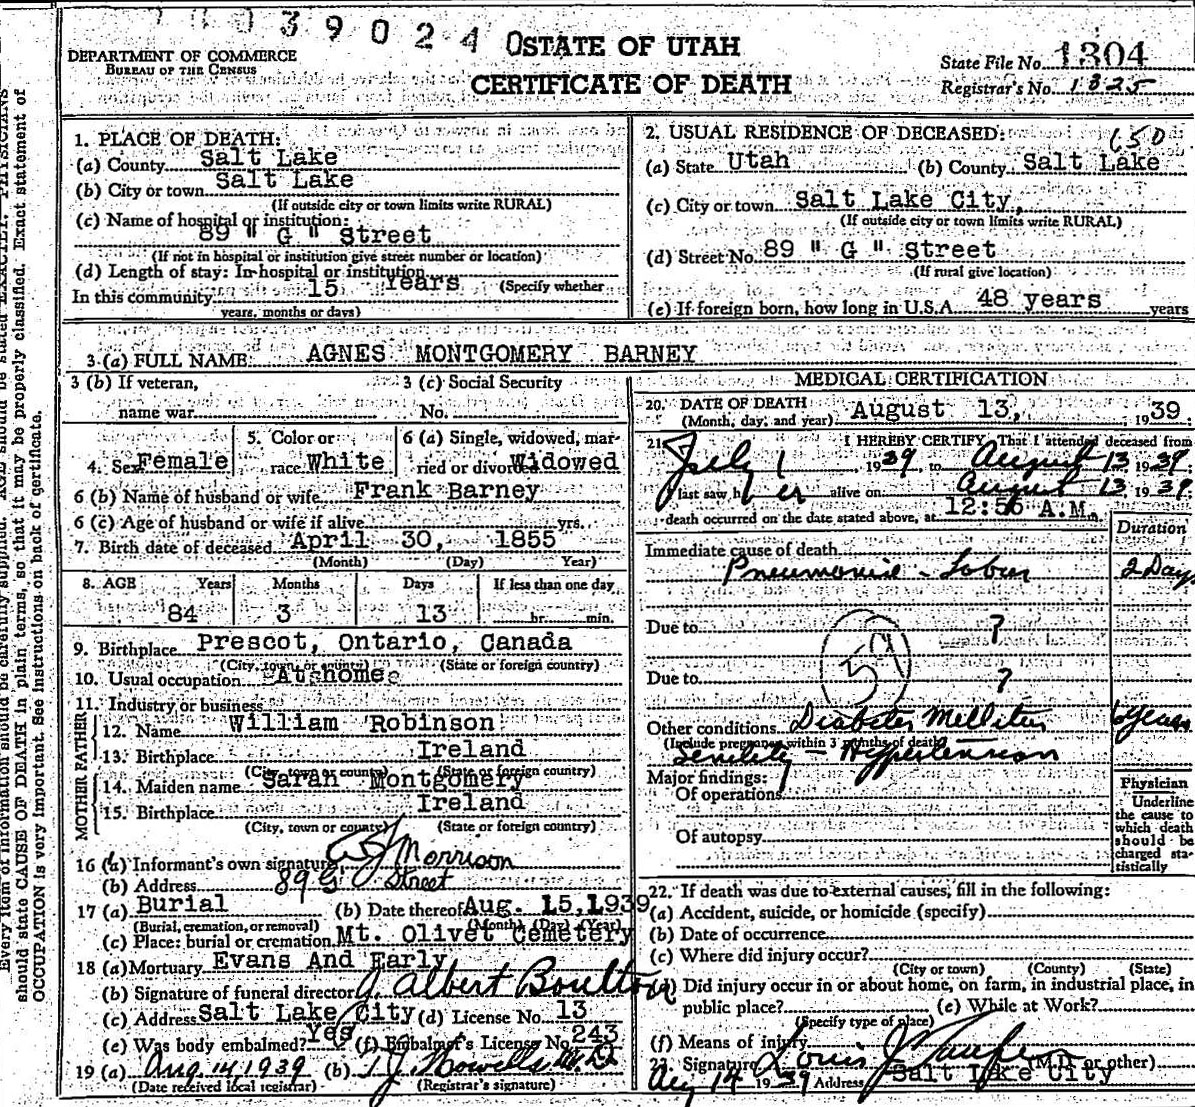 39024 0
STATE OF UTAH
CERTIFICATE OF DEATH
DEPARTMENT OF COMMERCE
BUREAU OF THE CENSUS
State File No. 1304
Registrar's No. 1325
1. PLACE OF DEATH:
(a) County Salt Lake
(b) City or town Salt Lake
(If outside city or town limits write RURAL)
(c) Name of hospital or institution:
89 " G " Street
(If not in hospital or institution give street number or location)
(d) Length of stay: In hospital or institution
In this community 15 Years (Specify whether
years, months or days)
2. USUAL RESIDENCE OF DECEASED: 650
(a) State Utah (b) County Salt Lake
(c) City or town Salt Lake City,
(If outside city or town limits write RURAL)
(d) Street No. 89 " G " Street
(If rural give location)
(e) If foreign born, how long in U.S.A. 48 years years
3 (a) FULL NAME AGNES MONTGOMERY BARNEY
3 (b) If veteran,
name war
3 (c) Social Security
No.
4. Sex Female
5. Color or
race White
6 (a) Single, widowed, mar-
ried or divorced Widowed
6 (b) Name of husband or wife Frank Barney
6 (c) Age of husband or wife if alive yrs.
7. Birth date of deceased April 30, 1855
(Month) (Day) Year)
8. AGE Years Months Days If less than one day
84 3 13 hr. min.
9. Birthplace Prescot, Ontario, Canada
(City, town or county) (State or foreign country)
10. Usual occupation At home
11. Industry or business
FATHER
12. Name William Robinson
13. Birthplace Ireland
(City, town or county) (State or foreign country)
MOTHER
14. Maiden name Sarah Montgomery
15. Birthplace Ireland
(City, town or county) (State or foreign country)
16 (a) Informant's own signature Morrison
(b) Address 89 G Street
17 (a) Burial (b) Date thereof Aug. 15, 1939
(Burial, cremation, or removal) (Month) (Day) (Year)
(c) Place: burial or cremation Mt. Olivet Cemetery
18 (a) Mortuary Evans And Early
(b) Signature of funeral director J. Albert Boulton
(c) Address Salt Lake City (d) License No. 13
(e) Was body embalmed? Yes (f) Embalmer's License No. 243
19 (a) Aug. 14, 1939 (b) T. J. Howells M.D.
(Date received local registrar) (Registrar's signature)
MEDICAL CERTIFICATION
20. DATE OF DEATH
(Month, day, and year) August 13, 1939.
21. I HEREBY CERTIFY, That I attended deceased from
July 1, 1939, to August 13, 1939.
I last saw her alive on August 13, 1939.
death occurred on the date stated above, at 12:56 A.M.
Duration
Immediate cause of death
Pneumonia - Lobar 2 Days
Due to ?
Due to ?
Other conditions Diabetes Mellitus 6 years
(Include pregnancy within 3 months of death)
Senility - Hypertension
Major findings:
Of operations
Of autopsy
Physician
Underline
the cause to
which death
should be
charged sta-
tistically
22. If death was due to external causes, fill in the following:
(a) Accident, suicide, or homicide (specify)
(b) Date of occurrence
(c) Where did injury occur?
(City or town) (County) (State)
(d) Did injury occur in or about home, on farm, in industrial place, in
public place? (e) While at Work?
(Specify type of place)
(f) Means of injury
23. Signature Louis J. (M.D. or other)
Aug 14 1939 Address Salt Lake City
Every item of information should be carefully supplied. AGE should be stated EXACTLY. PHYSICIANS
should state CAUSE OF DEATH in plain terms, so that it may be properly classified. Exact statement of
OCCUPATION is very important. See instructions on back of certificate.